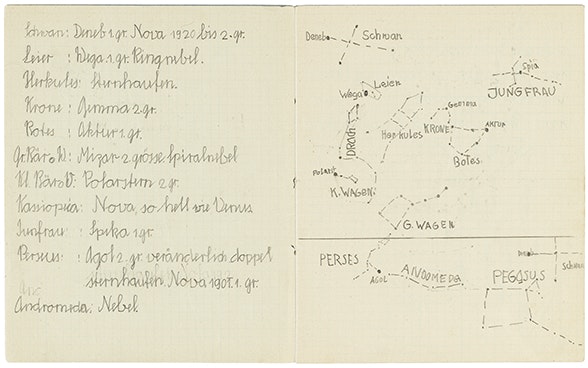 Schwan: Deneb 1.gr. Nova 1920 bis 2.gr.
Leier : Wega 1.gr. Ringnebel.
Herkules: Sternhaufen.
Krone : Gemma 2.gr.
Botes : Aktur 1.gr.
Gr.Bär o.W: Mizar 2.grösse. Spiralnebel
Kl. Bär o.W: Polarstern 2.gr.
Kassiopeia: Nova, so hell wie Venus
Jungfrau: Spika 1.gr
Perseus: Agol 2.gr. veränderlich doppel
sternhaufen. Nova 1901. 1. gr.
Andromeda: Nebel.
Deneb
Schwan
Wega
Leier
Spia
JUNGFRAU
DRACH
Herkules
KRONE
AKTUR
Botes
POLARIS
K.WAGEN.
G.WAGEN
PERSES
AGOL
ANDOMEDA
PEGASUS
Deneb
Schwan